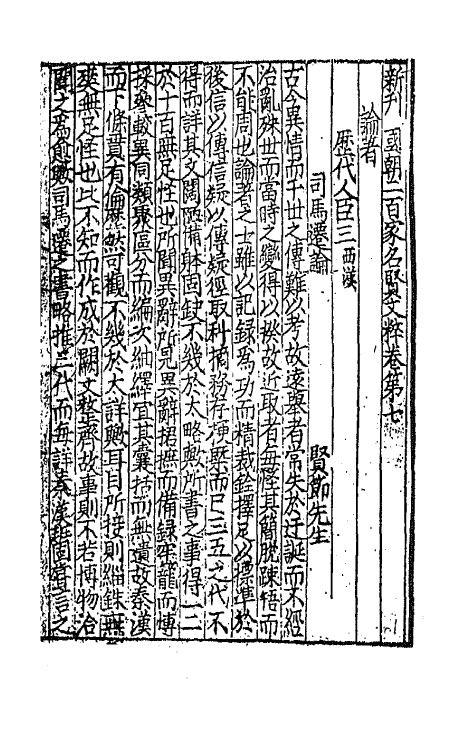 新刋國朝二百家名賢文粹卷第七
論著
歷代人臣三西漢
司馬遷論 賢節先生
古今異情而千世之傳難以考故遠舉者常失於迂誕而不經
治亂殊世而當時之變得以揆故近取者每怪其簡脫踈牾而
不能周也論著之士雖以記録為功而精裁銓擇足以標準於
後信以傳信疑以傳疑徑取科摘務存梗槩而已三五之代不
得而詳其文闊陋備躰固缺不幾於太略歟所書之事得一二
於千百無足怪也所聞異辭所見異辭捃摭而備録牢籠而慱
採參較異同類聚區分而編次紬繹宜其囊括而無遺故秦漢
而下條貫有倫歷然可觀不幾於太詳歟耳目所接則緇銖無
爽無足怪也比不知而作成於闕文整齊故事則不若博物洽
聞之為愈歟司馬遷之書略推三代而每詳秦漢班固嘗言之